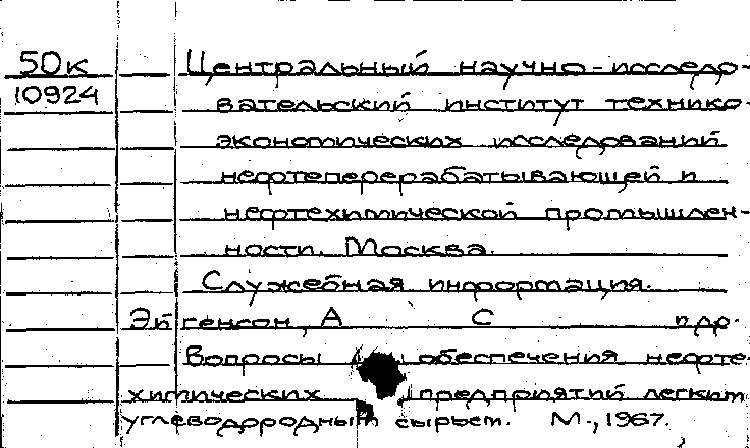 50к Центральный научно-исследо-
10924 вательский институт технико-
экономических исследований
нефтеперерабатывающей и
нефтехимической промышлен-
ности. Москва.
Служебная информация.
Эйгенсон, А С и др.
Вопросы обеспечения нефте
химических предприятий легким
углеводородным сырьем. М., 1967.